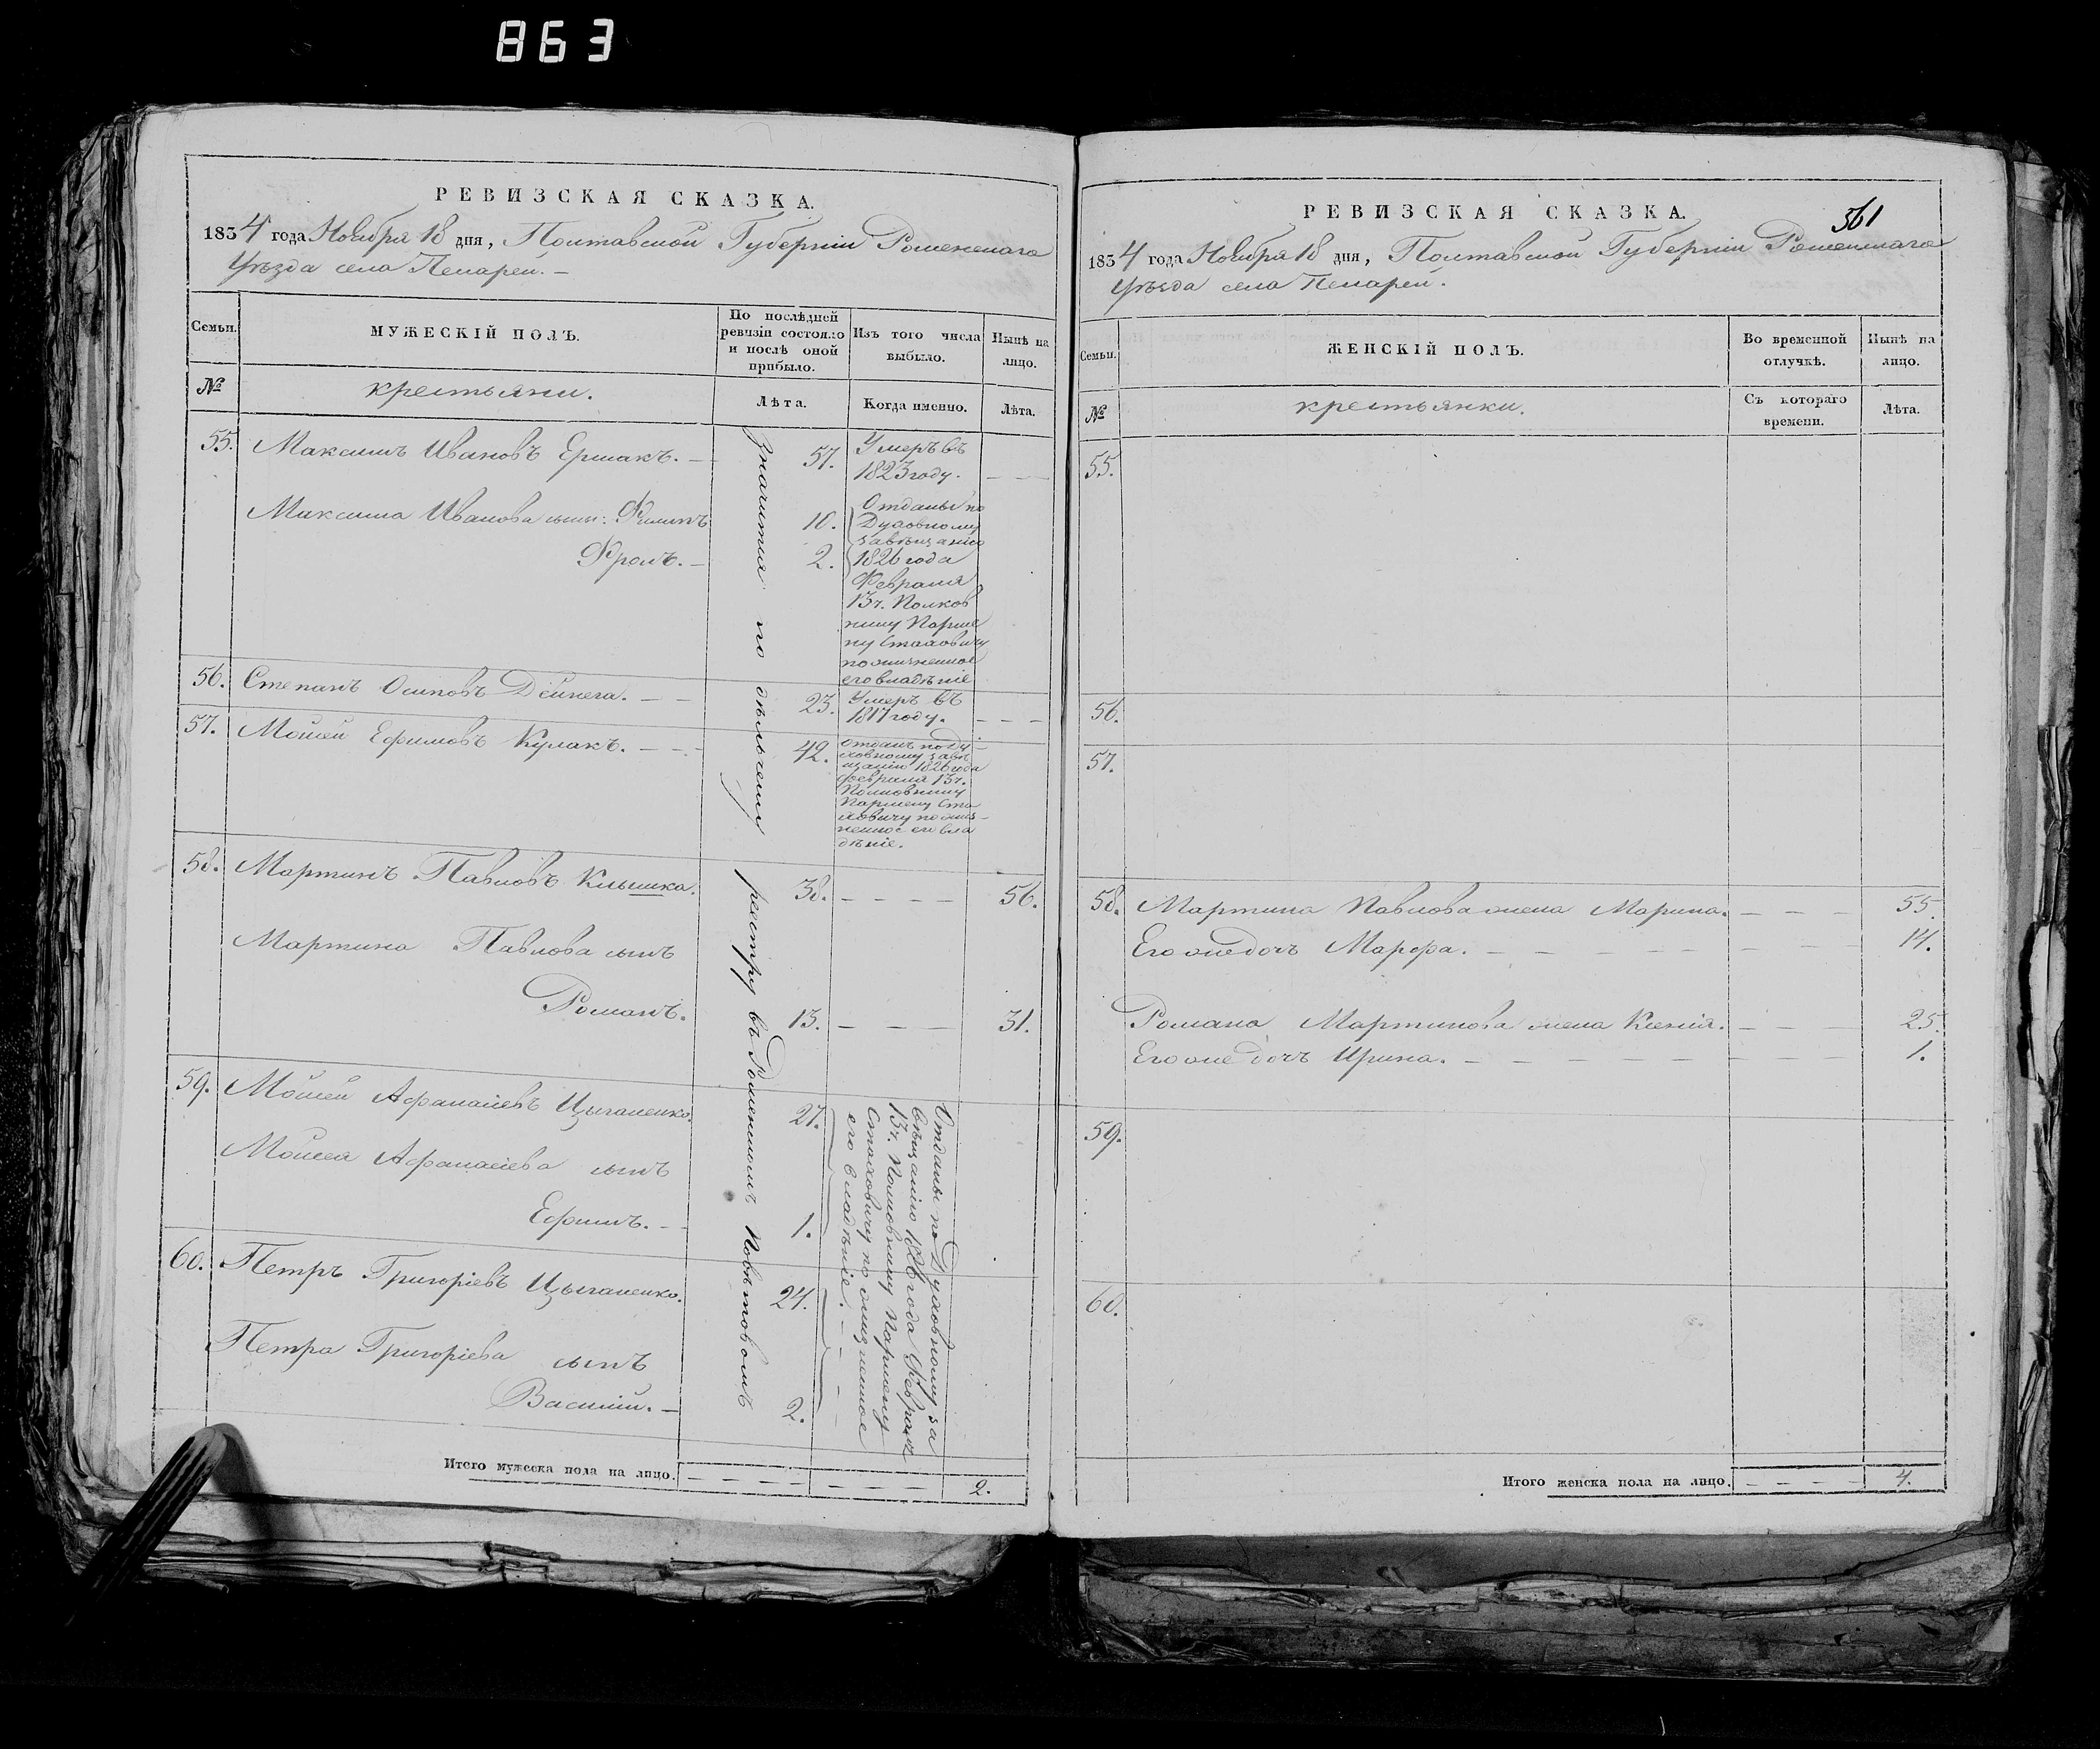 863
РЕВИЗСКАЯ СКАЗКА.
1834 года Ноября 18 дня, Полтавской Губерніи Роменскаго
Уѣзда села Пекарей. —
Семьи.
МУЖЕСКІЙ ПОЛЪ.
По послѣдней
ревизіи состояло
и послѣ оной
прибыло.
Изъ того числа
выбыло.
Нынѣ на
лицо.
№
крестьяни.
Лѣта.
Когда именно.
Лѣта.
55. Максимъ Ивановъ Ермакъ. — 57. Умеръ въ
1823 году. — — —
Максима Иванова сыны: Филипъ 16. Отданы по
Духовному
завѣщанію
Фролъ. — 2. 1826 года
Февраля
13ч. Полков
нику Парме
ну Стаховичу
пожизненное
его владѣніе
56. Степанъ Осиповъ Дейнега. — — 23. Умеръ въ
1817 году. — — —
57. Моисей Ефимовъ Кулакъ. — — — 42. Отданъ по Ду-
ховному завѣ
щанію 1826 года
февраля 13ч.
Полковнику
Пармену Ста
ховичу пожиз-
ненное его вла
дѣніе.
58. Мартинъ Павловъ Клышка. 38. — — — — 56.
Мартина Павлова сынъ
Романъ. 13. — — — 31.
59. Моисей Афанасіевъ Цыганенко. 27.
Моисея Афанасіева сынъ
Ефимъ. — — 1.
60. Петръ Григоріевъ Цыганенко. 24.
Петра Григоріева сынъ
Василій. — 2.
значится по дѣльчему реестру въ Роменскомъ Повѣтовомъ
Отданы по Духовному за
вѣщанію 1826 года Февраля
13ч. Полковнику Пармену
Стаховичу по жизненное
его владѣніе. — — — —
Итого мужеска пола на лицо. — — — — — — — — 2.
361
РЕВИЗСКАЯ СКАЗКА.
1834 года Ноября 18 дня, Полтавской Губерніи Роменскаго
Уѣзда села Пекарей.
Семьи.
ЖЕНСКІЙ ПОЛЪ.
Во временной
отлучкѣ.
Нынѣ на
лицо.
№
крестьянки.
Съ котораго
времени.
Лѣта.
55.
56.
57.
58. Мартина Павлова жена Марина. — — — 55.
Его же дочь Марфа. — — — — — — — — 14.
Романа Мартинова жена Ксенія. — — — 25.
Его же дочь Ирина. — — — — — — — — 1.
59.
60.
Итого женска пола на лицо. — — — — 4.